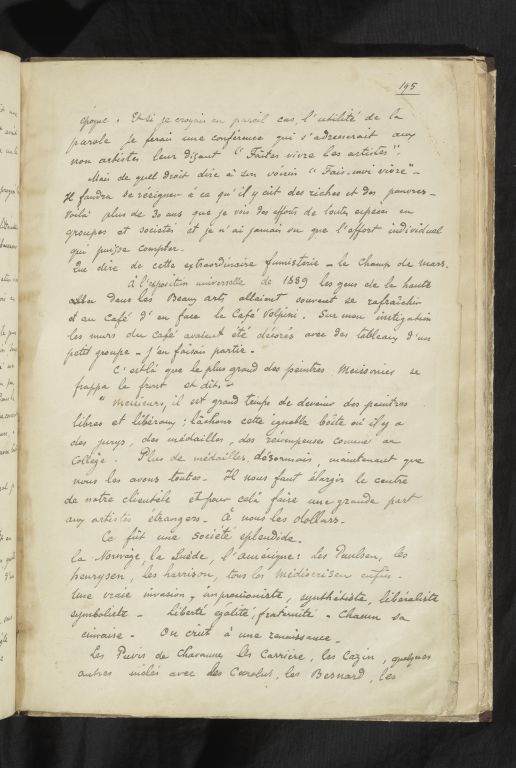 195
époque. Et si je croyais en pareil cas, l'utilité de la
parole je ferais une conférence qui s'adresserait aux
non artistes leur disant "Faites vivre les artistes".
Mais de quel droit dire à son voisin "Fais-moi vivre" -
Il faudra se résigner à ce qu'il y ait des riches et des pauvres -
Voilà plus de 30 ans que je vois des efforts de toutes espèces en
groupes et sociétés et je n'ai jamais vu que l'effort individuel
qui puisse compter -
Que dire de cette extraordinaire fumisterie - le Champ de Mars.
À l'exposition universelle de 1889 les gens de la haute
dans les Beaux arts allaient souvent se rafraîchir
au Café d'en face le Café Volpini. Sur mon instigation
les murs du café avaient été décorés avec des tableaux d'un
petit groupe - j'en faisais partie -
C'est là que le plus grand des peintres Meissonier se
frappa le front et dit: -
"Messieurs, il est grand temps de devenir des peintres
libres et libéraux; lâchons cette ignoble boîte où il y a
des jurys, des médailles, des récompenses comme au
Collège. Plus de médailles, désormais, maintenant que
nous les avons toutes - Il nous faut élargir le centre
de notre clientèle et pour celà faire une grande part
aux artistes étrangers - À nous les dollars -
Ce fût une société splendide.
la Norwège la Suède, l'amérique: les Paulsen, les
henrysen, les harrison, tous les médiocrisen enfin -
Une vraie invasion, impressionniste, synthétiste, libéraliste
symboliste - liberté égalité, fraternité - Chacun sa
cimaise - On crut à une renaissance -
Les Puvis de Chavanne, les Carrière, les Cazin, quelques
autres mêlés avec les Carolus, les Besnard, les